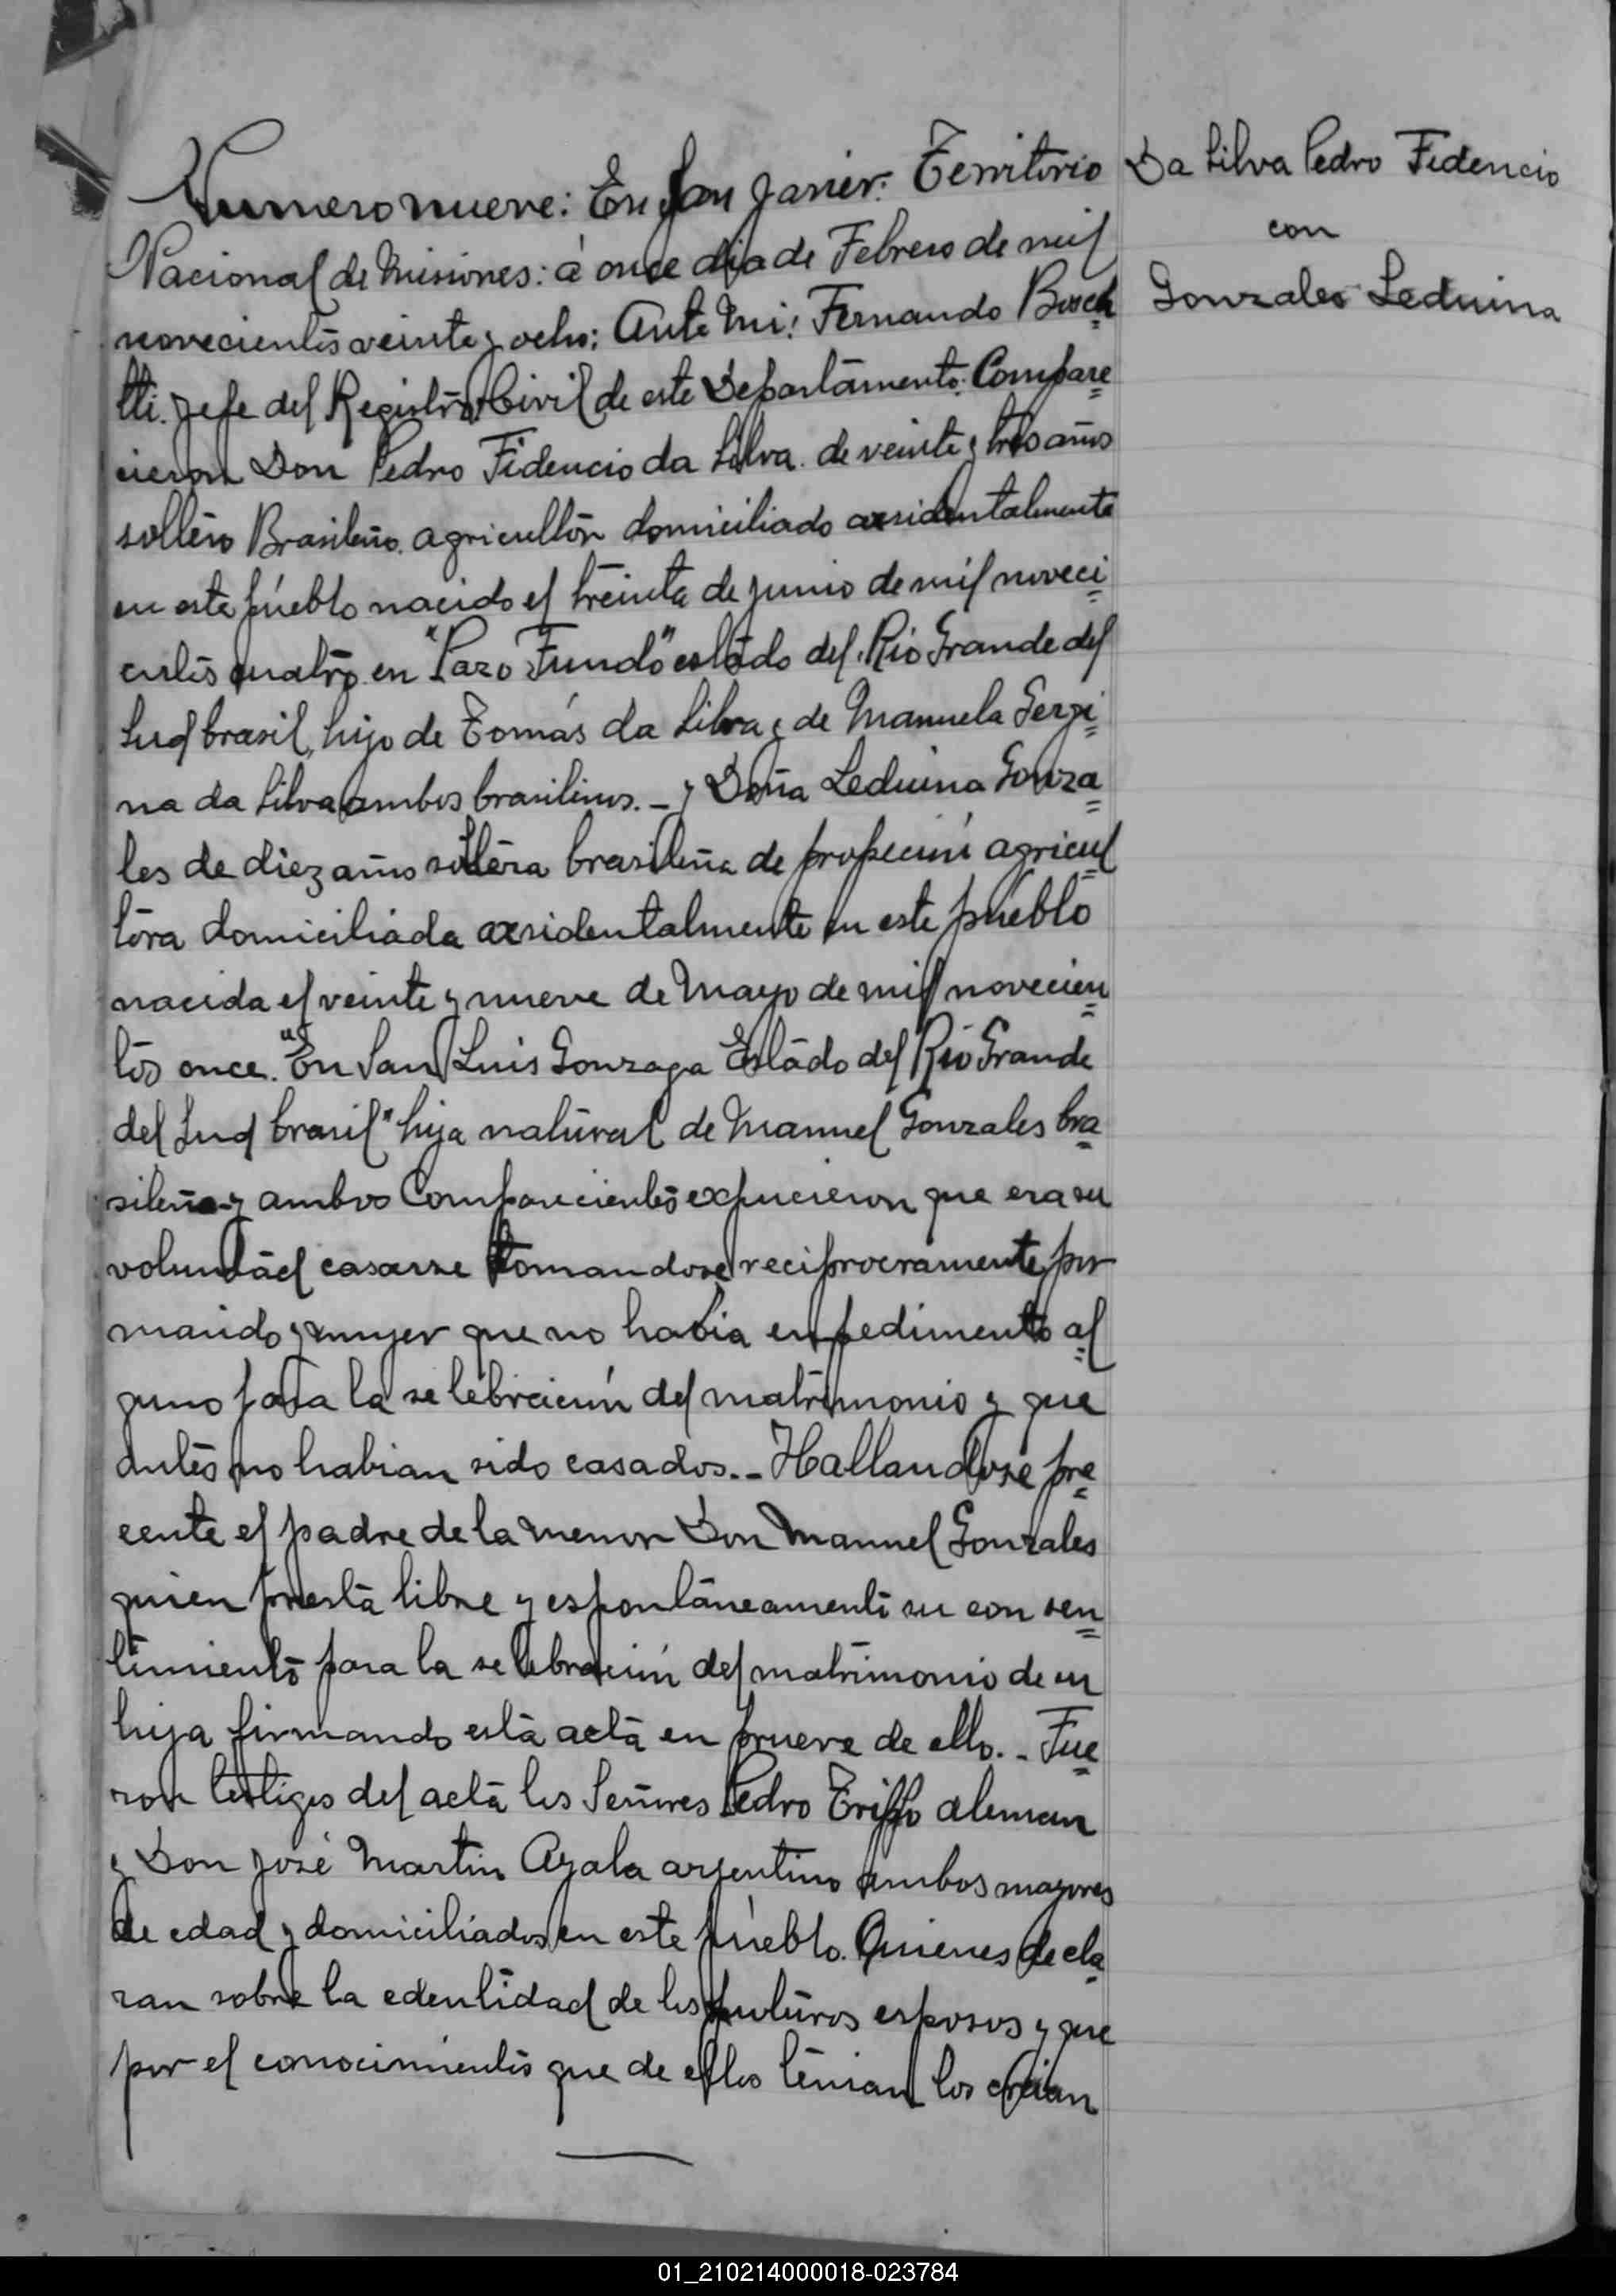 Numero nueve: En San Javier: Territorio
Nacional de Misiones: á once dia de Febrero de mil
novecientos veinte y ocho: Ante Mi: Fernando Bosch
tti. Jefe del Registro Civil de este Departamento: Compare
cieron Don Pedro Fidencio da Silva. de veinte y tres años
soltero Brasileño. agricultor domiciliado axsidentalmente
en este pueblo nacido el treinta de junio de mil noveci
entos cuatro en "Pazo Fundo" estado del Rio Grande del
Sud brasil, hijo de Tomás da Silva y de Manuela Sergi
na da Silva ambos brasilinos. - y Doña Leduina Gonza
les de diez años soltera brasileña de propecion agricul
tora domiciliada axsidentalmente en este pueblo
nacida el veinte y nueve de Mayo de mil novecien
tos once. "En San Luis Gonzaga Estado del Rio Grande
del Sud brasil" hija natural de Manuel Gonzales bra
sileño y ambos Comparecientes expucieron que era su
voluntad casarse tomandose reciprocramente por
marido y mujer que no habia enpedimento al
guno para la selebracion del matrimonio y que
antes no habian sido casados. - Hallandose pre
cente el padre de la menor Don Manuel Gonzales
quien presta libre y espontaneamente su con sen
timiento para la selebracion del matrimonio de su
hija firmando esta acta en prueve de ello. - Fue
ron testigos del acta los Señores Pedro Griffo aleman
y Don José Martin Ayala argentino ambos mayores
de edad y domiciliados en este pueblo. Quienes decla
ran sobre la edentidad de los futuros esposos y que
por el conocimientos que de ellos tenian los creian
Da Silva Pedro Fidencio
con
Gonzales Leduina
01_210214000018-023784